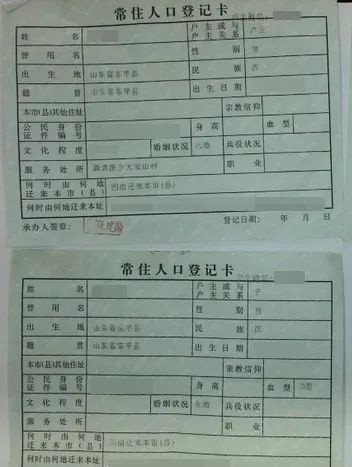 常住人口登记卡
户主姓名:
姓 名 户主或与户主关系 户主
曾用名 性别 男
出生地 山东省东平县 民族 汉
籍贯 山东省东平县 出生日期
本市(县)其他住址 宗教信仰
公民身份证件编号 身高 血型
文化程度 婚姻状况 已婚 兵役状况
服务处所 职业
何时由何地迁来本市(县)
何时由何地迁来本址
承办人签章: 登记日期: 年 月 日
常住人口登记卡
户主姓名:
姓 名 户主或与户主关系 子
曾用名 性别 男
出生地 山东省东平县 民族 汉
籍贯 山东省东平县 出生日期
本市(县)其他住址 宗教信仰
公民身份证件编号 身高 血型
文化程度 婚姻状况 未婚 兵役状况
服务处所 职业
何时由何地迁来本市(县)
何时由何地迁来本址